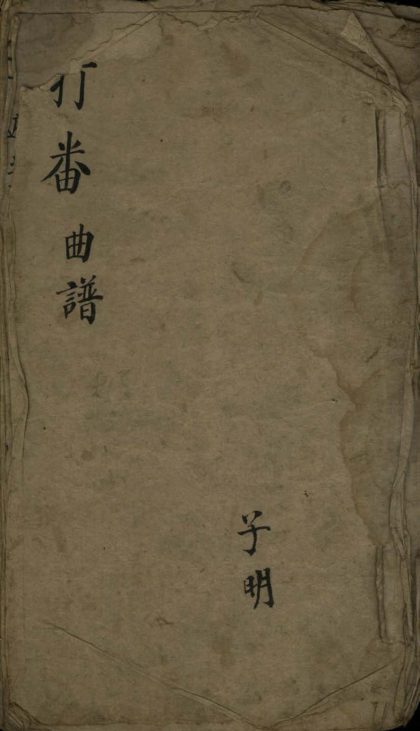 打番曲譜
子明